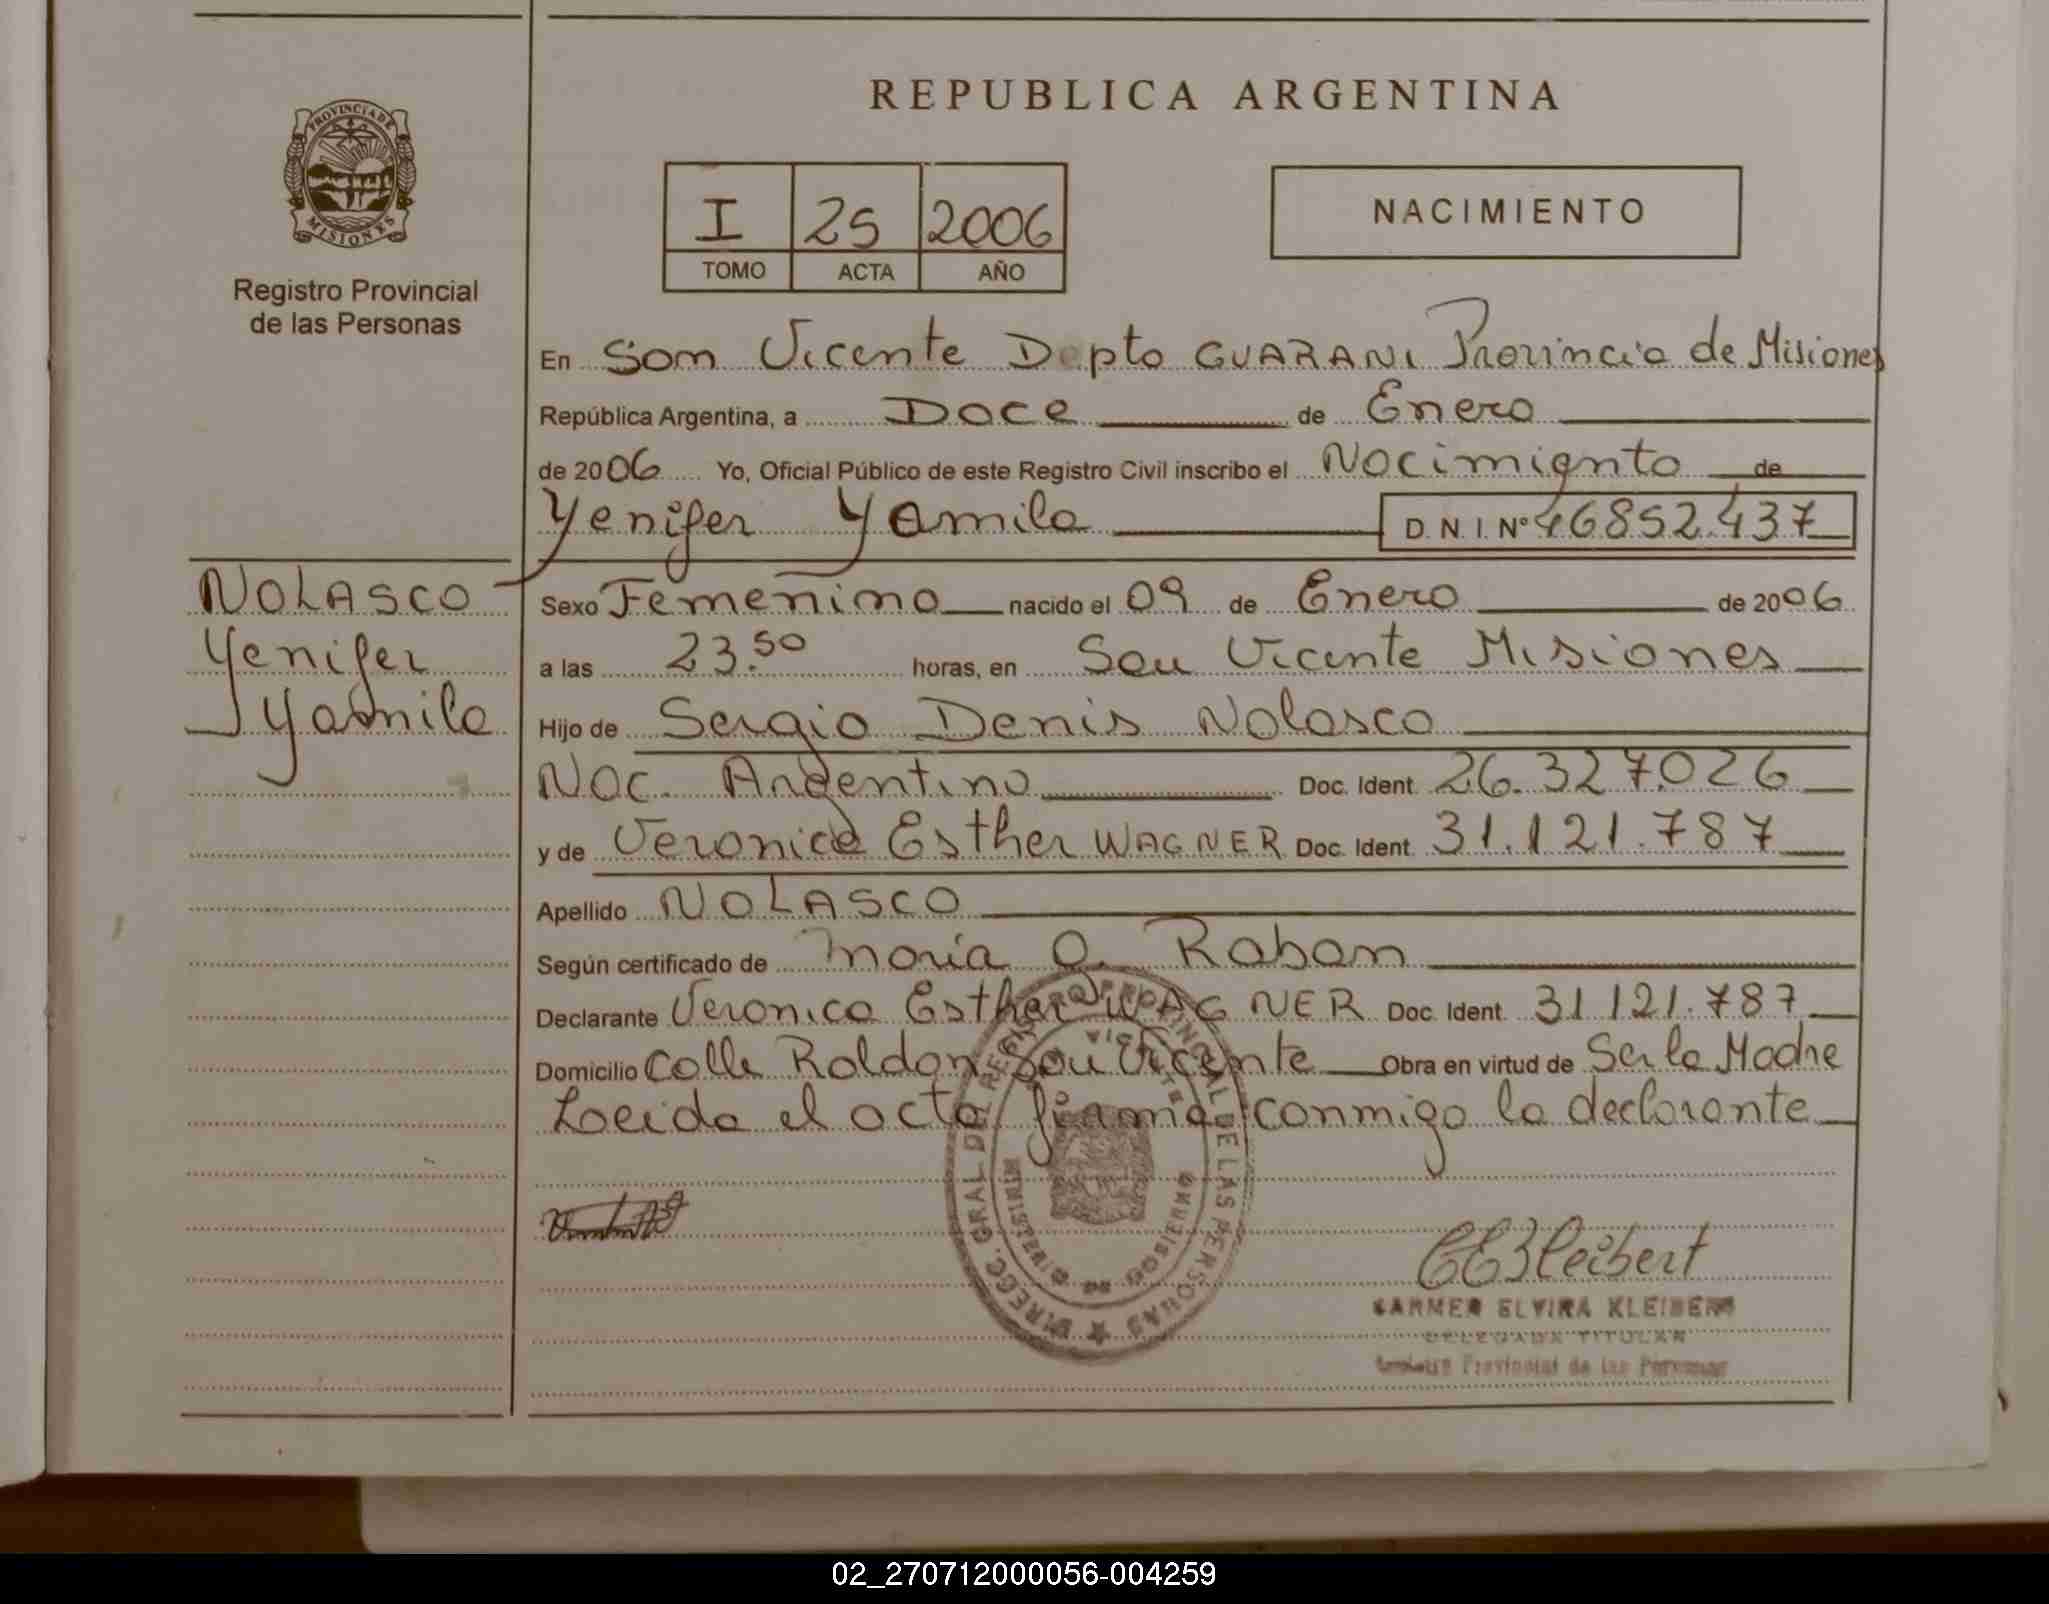 REPUBLICA ARGENTINA
PROVINCIA DE
MISIONES
Registro Provincial
de las Personas
I 25 2006
TOMO ACTA AÑO
NACIMIENTO
En San Vicente Depto GUARANI Provincia de Misiones
República Argentina, a Doce de Enero
de 2006 Yo, Oficial Público de este Registro Civil inscribo el Nacimiento de
Yenifer Yamila D.N.I. Nº 46852.437
NOLASCO
Yenifer
Yamila
Sexo Femenino nacido el 09 de Enero de 2006
a las 23.50 horas, en San Vicente Misiones
Hijo de Sergio Denis Nolasco
Nac. Argentino Doc. Ident. 26.327.026
y de Veronica Esther WAGNER Doc. Ident. 31.121.787
Apellido NOLASCO
Según certificado de Maria O. Raban
Declarante Veronica Esther WAGNER Doc. Ident. 31.121.787
Domicilio Calle Roldan San Vicente Obra en virtud de Ser la Madre
Leida el acta firma conmigo la declarante
DIRECC. GRAL DEL REGISTRO PROVINCIAL DE LAS PERSONAS
MINISTERIO DE GOBIERNO
CEKleibert
CARMEN ELVIRA KLEIBERT
DELEGADA TITULAR
Registro Provincial de las Personas
02_270712000056-004259